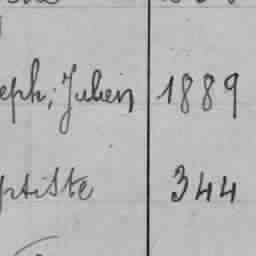 eph, Julien 1889
ptiste 344